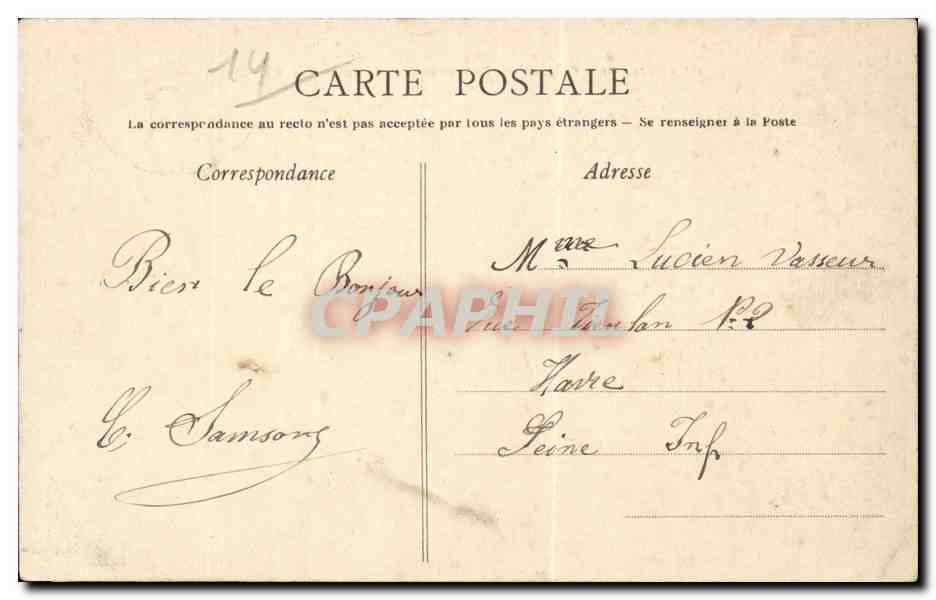 14
CARTE POSTALE
La correspondance au recto n'est pas acceptée par tous les pays étrangers — Se renseigner à la Poste
Correspondance
Adresse
Bien le Bonjour
E. Samson
Mme Lucien Vasseur
Rue
Havre
Seine Inf
CPAPHIL